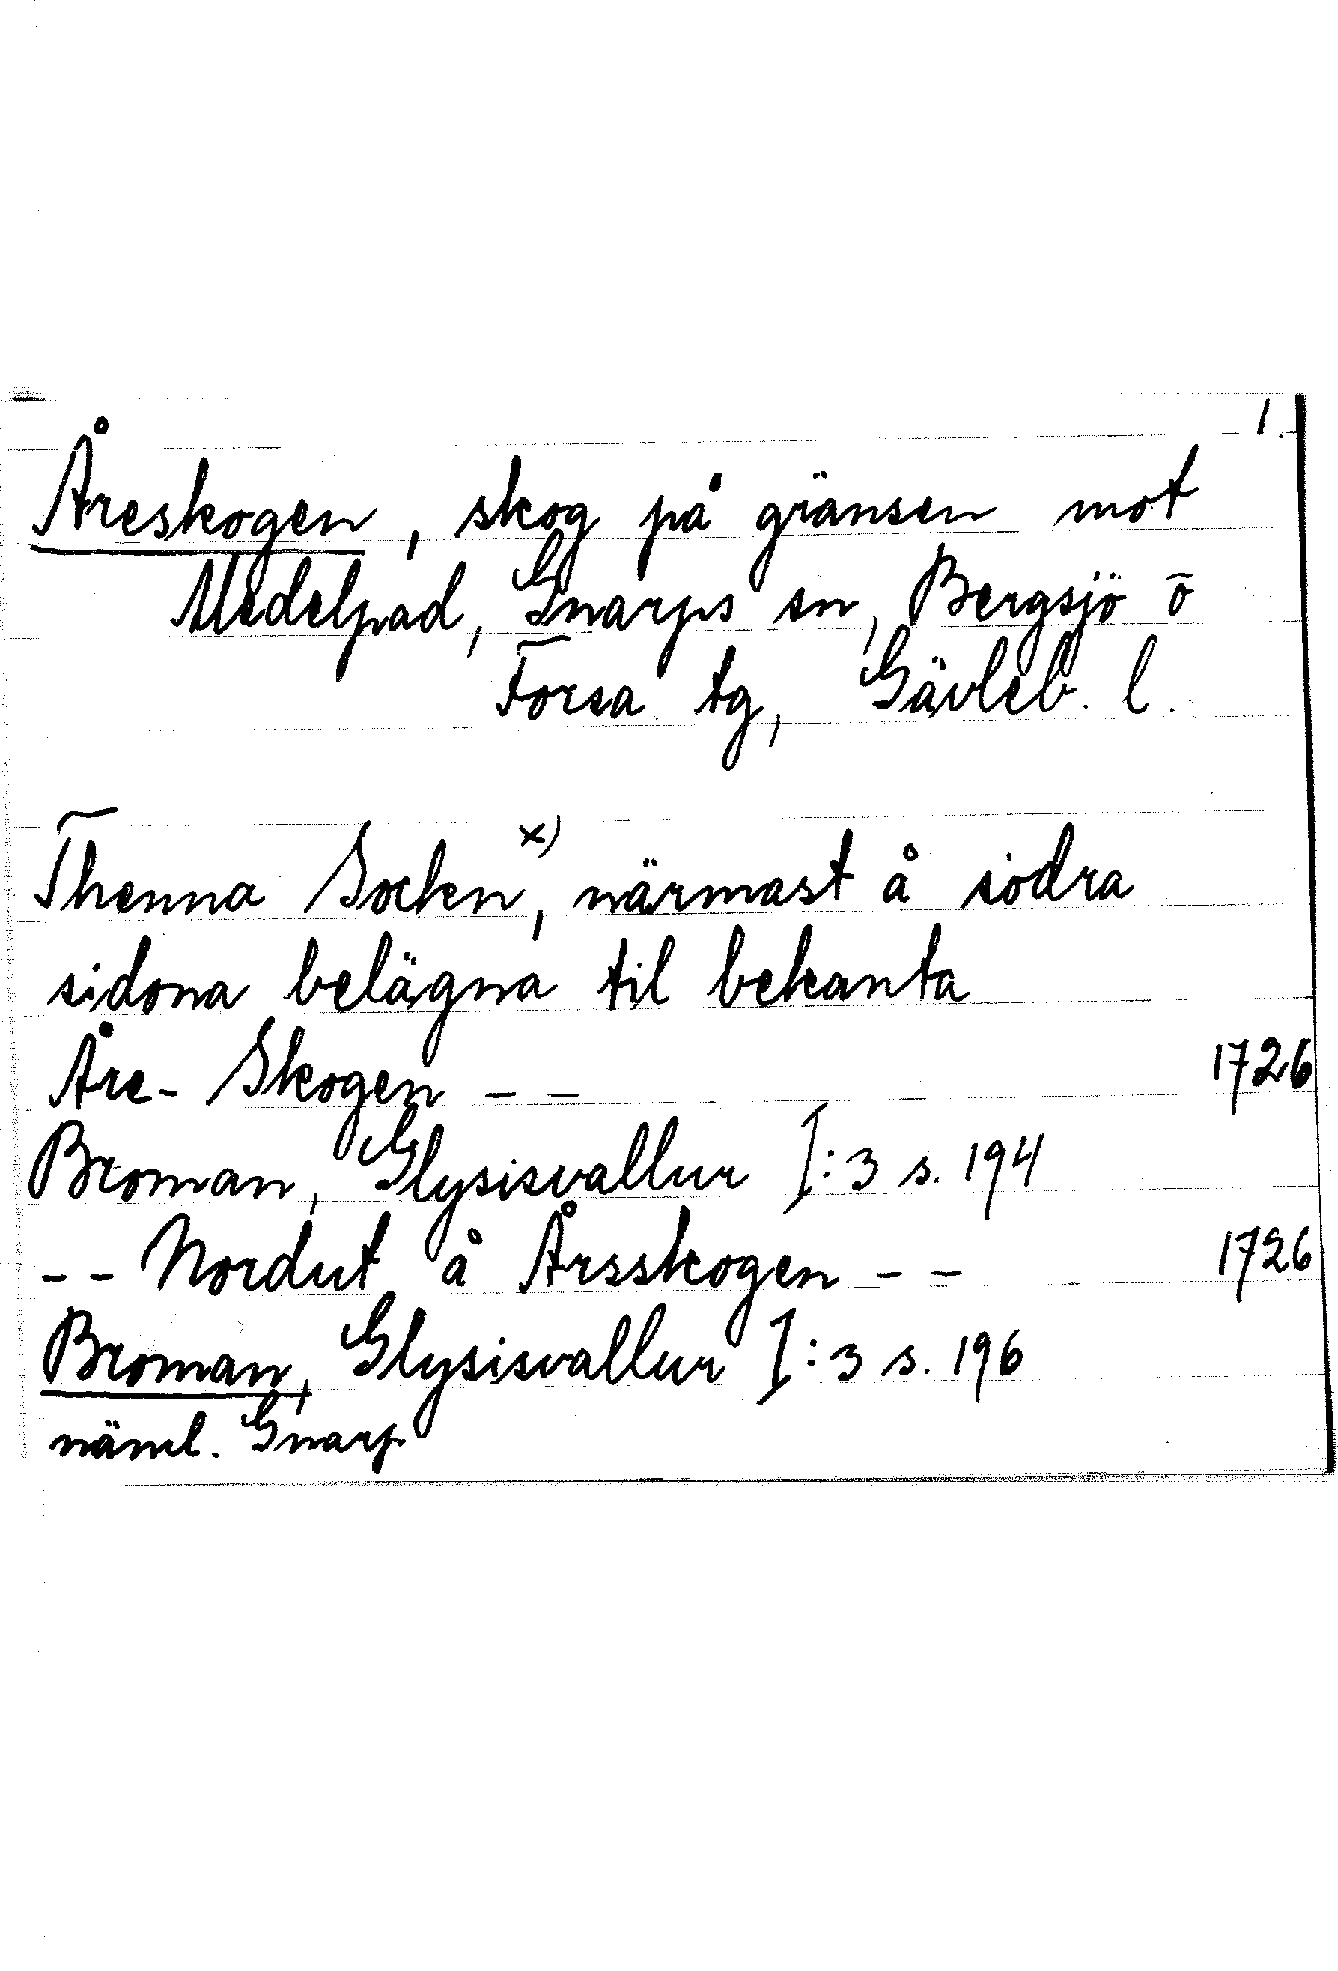 1.
Åreskogen, skog på gränsen mot
Medelpad, Gnarps sn, Bergsjö o
Forsa tg, Gävleb. l.
Thenna Socken x), närmast å södra
sidona belägna til bekanta
Åre-Skogen -- 1726
Broman, Glysisvallur I:3 s. 194
-- Nordut å Årsskogen -- 1726
Broman, Glysisvallur I:3 s. 196
näml. Gnarp